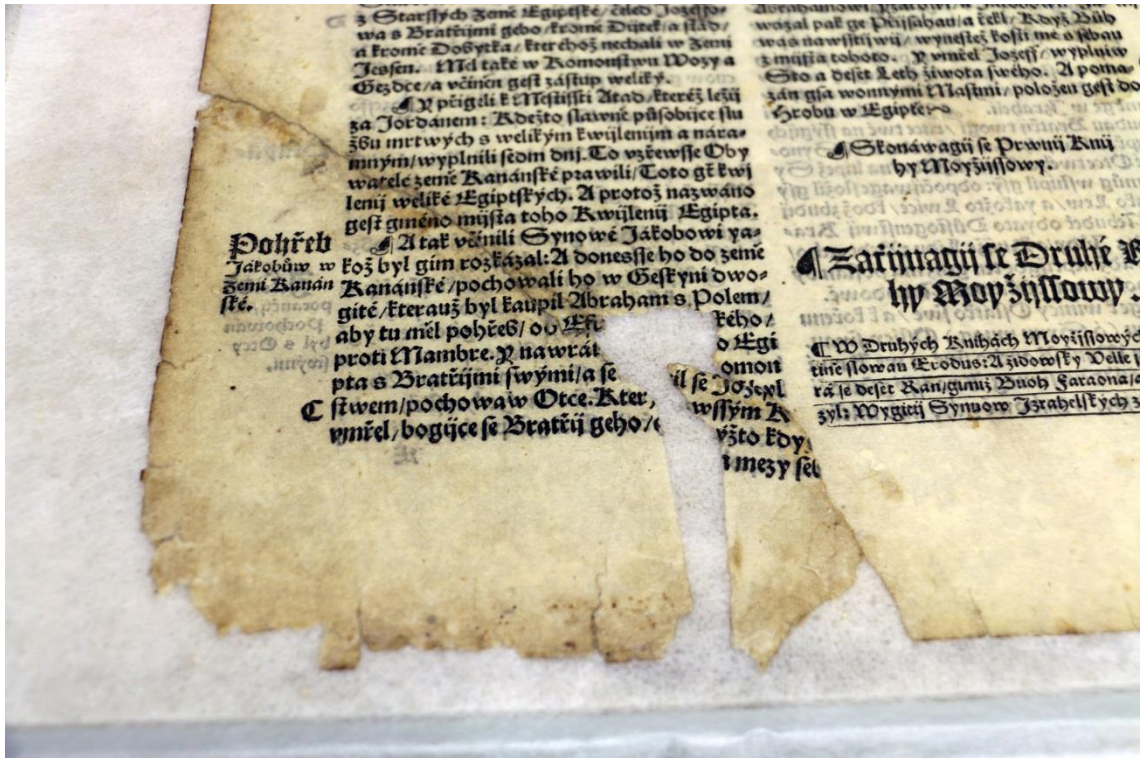 z Starssých Země Egiptské / čeled Jozeffo-
wa s Bratřijmi geho / krome Dijtek / a stád /
a krome Dobytka / kterehož nechali w Zemi
Jessen. Měl také w Komonstwu Wozy a
Gezdce / a včiněn gest zástup weliký.
Y přigeli k Městissti Atad / kteréž ležij
za Jordánem: Kdežto slawně působijce slu
žbu mrtwých s welikým kwijlenijm a nára-
mným / wyplnili sedm dnj. To vzřewsse Oby
watelé země Kanánské prawili / Toto gt kwj
lenij weliké Egiptských. A protož nazwáno
gest gméno mijsta toho Kwijlenij Egipta.
A tak včinili Synowé Jákobowi ya-
kož byl gim rozkázal: A donesse ho do země
Kanánské / pochowali ho w Geskyni dwo-
gité / kterauž byl kaupil Abraham s Polem /
aby tu měl pohřeb / od Efr kého /
proti Mambre. Y nawrát o Egi
pta s Bratřijmi swými / a se omon
stwem / pochowaw Otce. Kter il se Jozeff
vmřel / bogijce se Bratřij geho / wssým K
ýžto kdy
mezy seb
Pohřeb
Jákobůw w
Zemi Kanán
ské.
wázal pak ge Přijsahau / a řekl / Když Bůh
was nawsstijwij / wynestež kosti mé s sebau
z mijsta tohoto. Y vmřel Jozeff / wyplniw
Sto a deset Leth žiwota swého. A poma-
zán gsa wonnými Mastmi / položen gest do
Hrobu w Egiptě
Skonáwagij se Prwnij Knij
hy Moyžijssowy.
Začijnagij se Druhé K
hy Moyžijssowy.
W Druhých Knihách Moyžijssowýc
tině slowau Exodus: A židowsky Velle
rá se deset Ran / gimiž Buoh Faraona /
zyl: Wygitij Synuow Izrahelských z